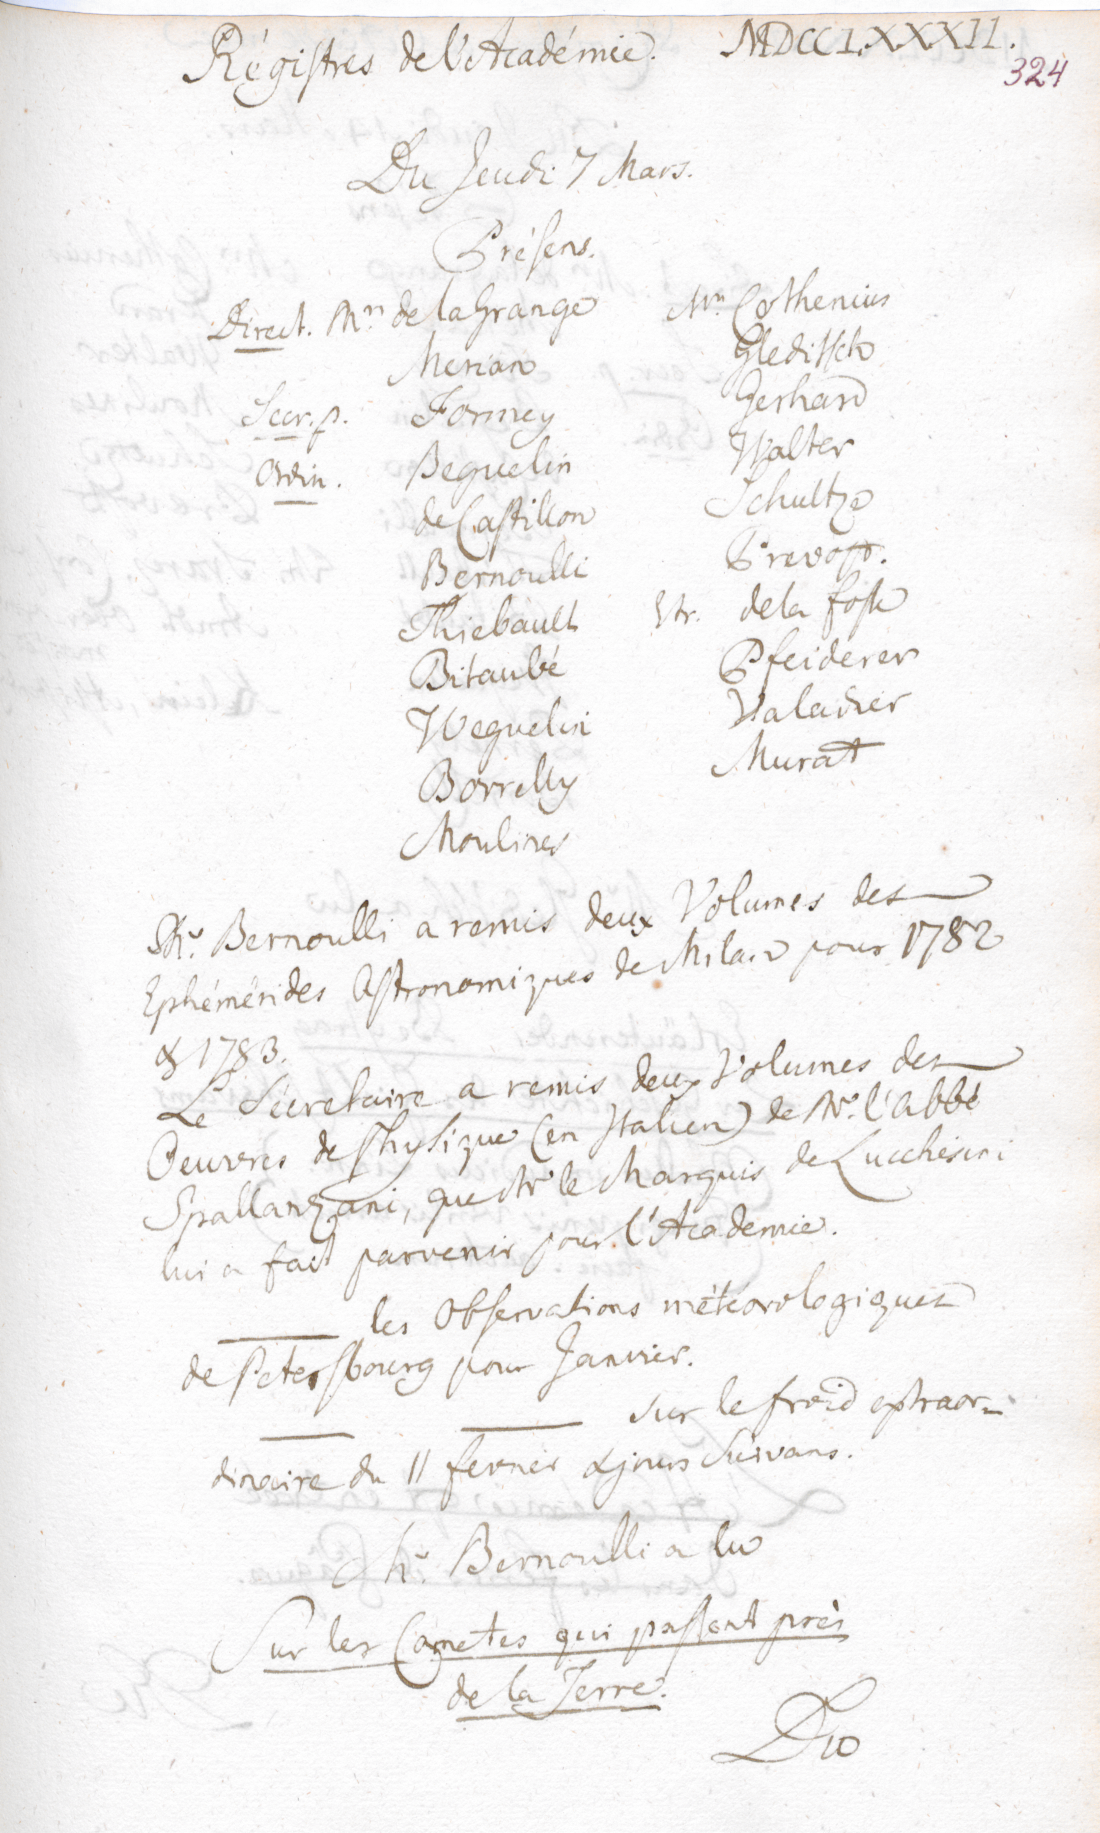 Régistres de l'Académie. MDCCLXXXII.
324
Du Jeudi 7 Mars.
Présens.
Direct. Mrs de la Grange
Merian
Secr. p. Formey
Ordin. Beguelin
de Castillon
Bernoulli
Thiebault
Bitaubé
Weguelin
Borrelly
Moulines
Mrs Cothenius
Gleditsch
Gerhard
Walter
Schultze
Prevost.
Etr. de la Foste
Pfeiderer
Valadier
Murat
Mr. Bernoulli a remis deux Volumes des
Ephémérides Astronomiques de Milan pour 1782
& 1783.
Le Sécretaire a remis deux Volumes des
Oeuvres de Physique (en Italien) de Mr. l'Abbé
Spallanzani, que Mr le Marquis de Lucchesini
lui a fait parvenir pour l'Academie.
les Observations météorologiques
de Petersbourg pour Janvier.
sur le froid extraor-
dinaire du 11 fevrier & jours suivans.
Mr. Bernoulli a lu
Sur les Cometes qui passent près
de la Terre.
Du